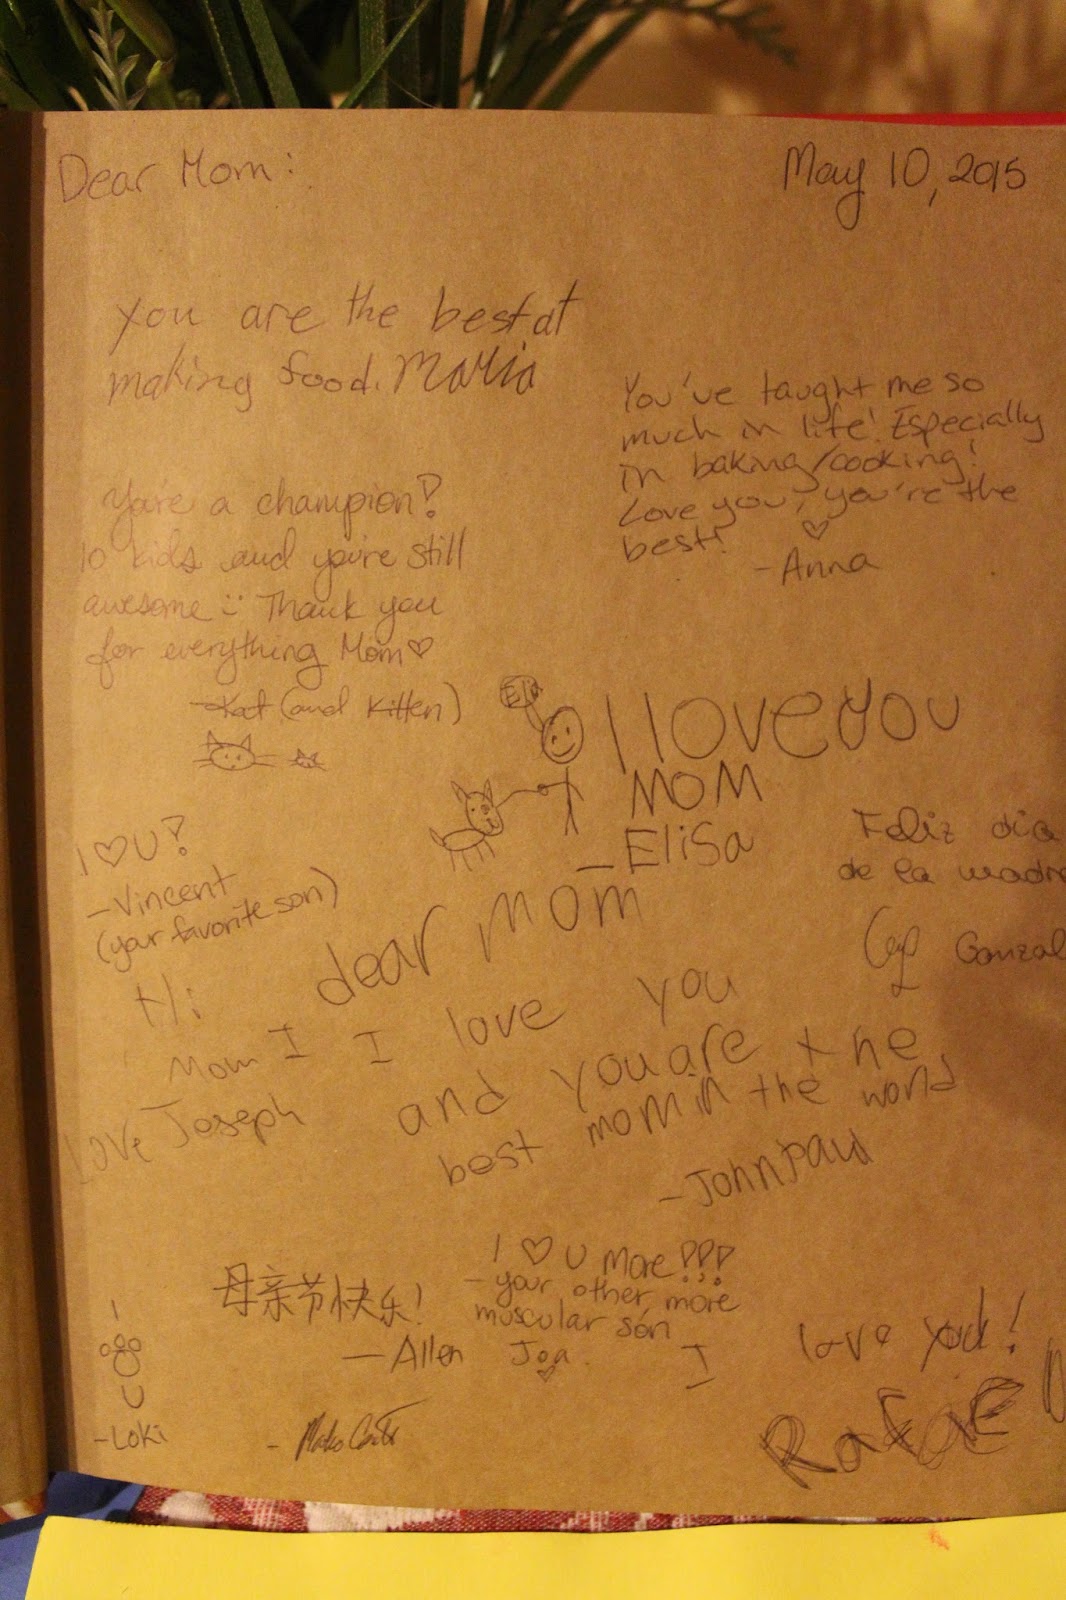 Dear Mom:
May 10, 2015
You are the best at
making food. Maria
You've taught me so
much in life! Especially
in baking/cooking!
Love you, you're the
best! ♡
-Anna
You're a champion!
10 kids and you're still
awesome :) Thank you
for everything Mom ♡
-Kat (and Kitten)
I love you
MOM
-Elisa
I ♡ U!
-Vincent
(your favorite son)
Feliz dia
de la madre
Gonzal
Hi
Mom I
Love Joseph
dear mom
I love you
and you are the
best mom in the world
-John Paul
母亲节快乐!
-Allen
I ♡ U More!!!
- your other, more
muscular son
Joa
♡
I love you!
RafaE
I
U
-Loki
-